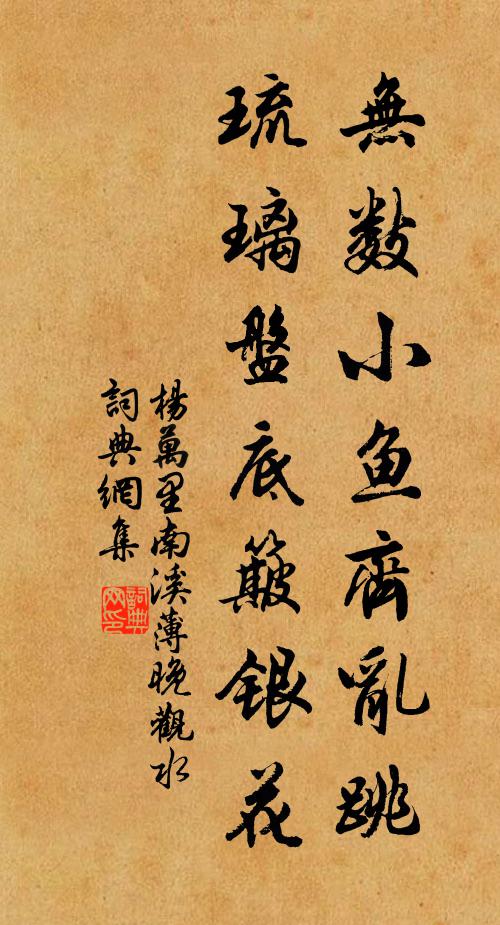 無數小鱼齊亂跳
琉璃盤底簸銀花
楊萬里南溪薄晚觀水
詞典網集
詞典网印